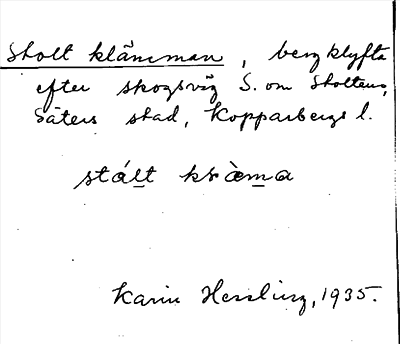 Stolt klämman, bergklyfta
efter skogsväg S. om Stolten,
Säters stad, Kopparbergs l.
stált kràma
Karin Hessling, 1935.